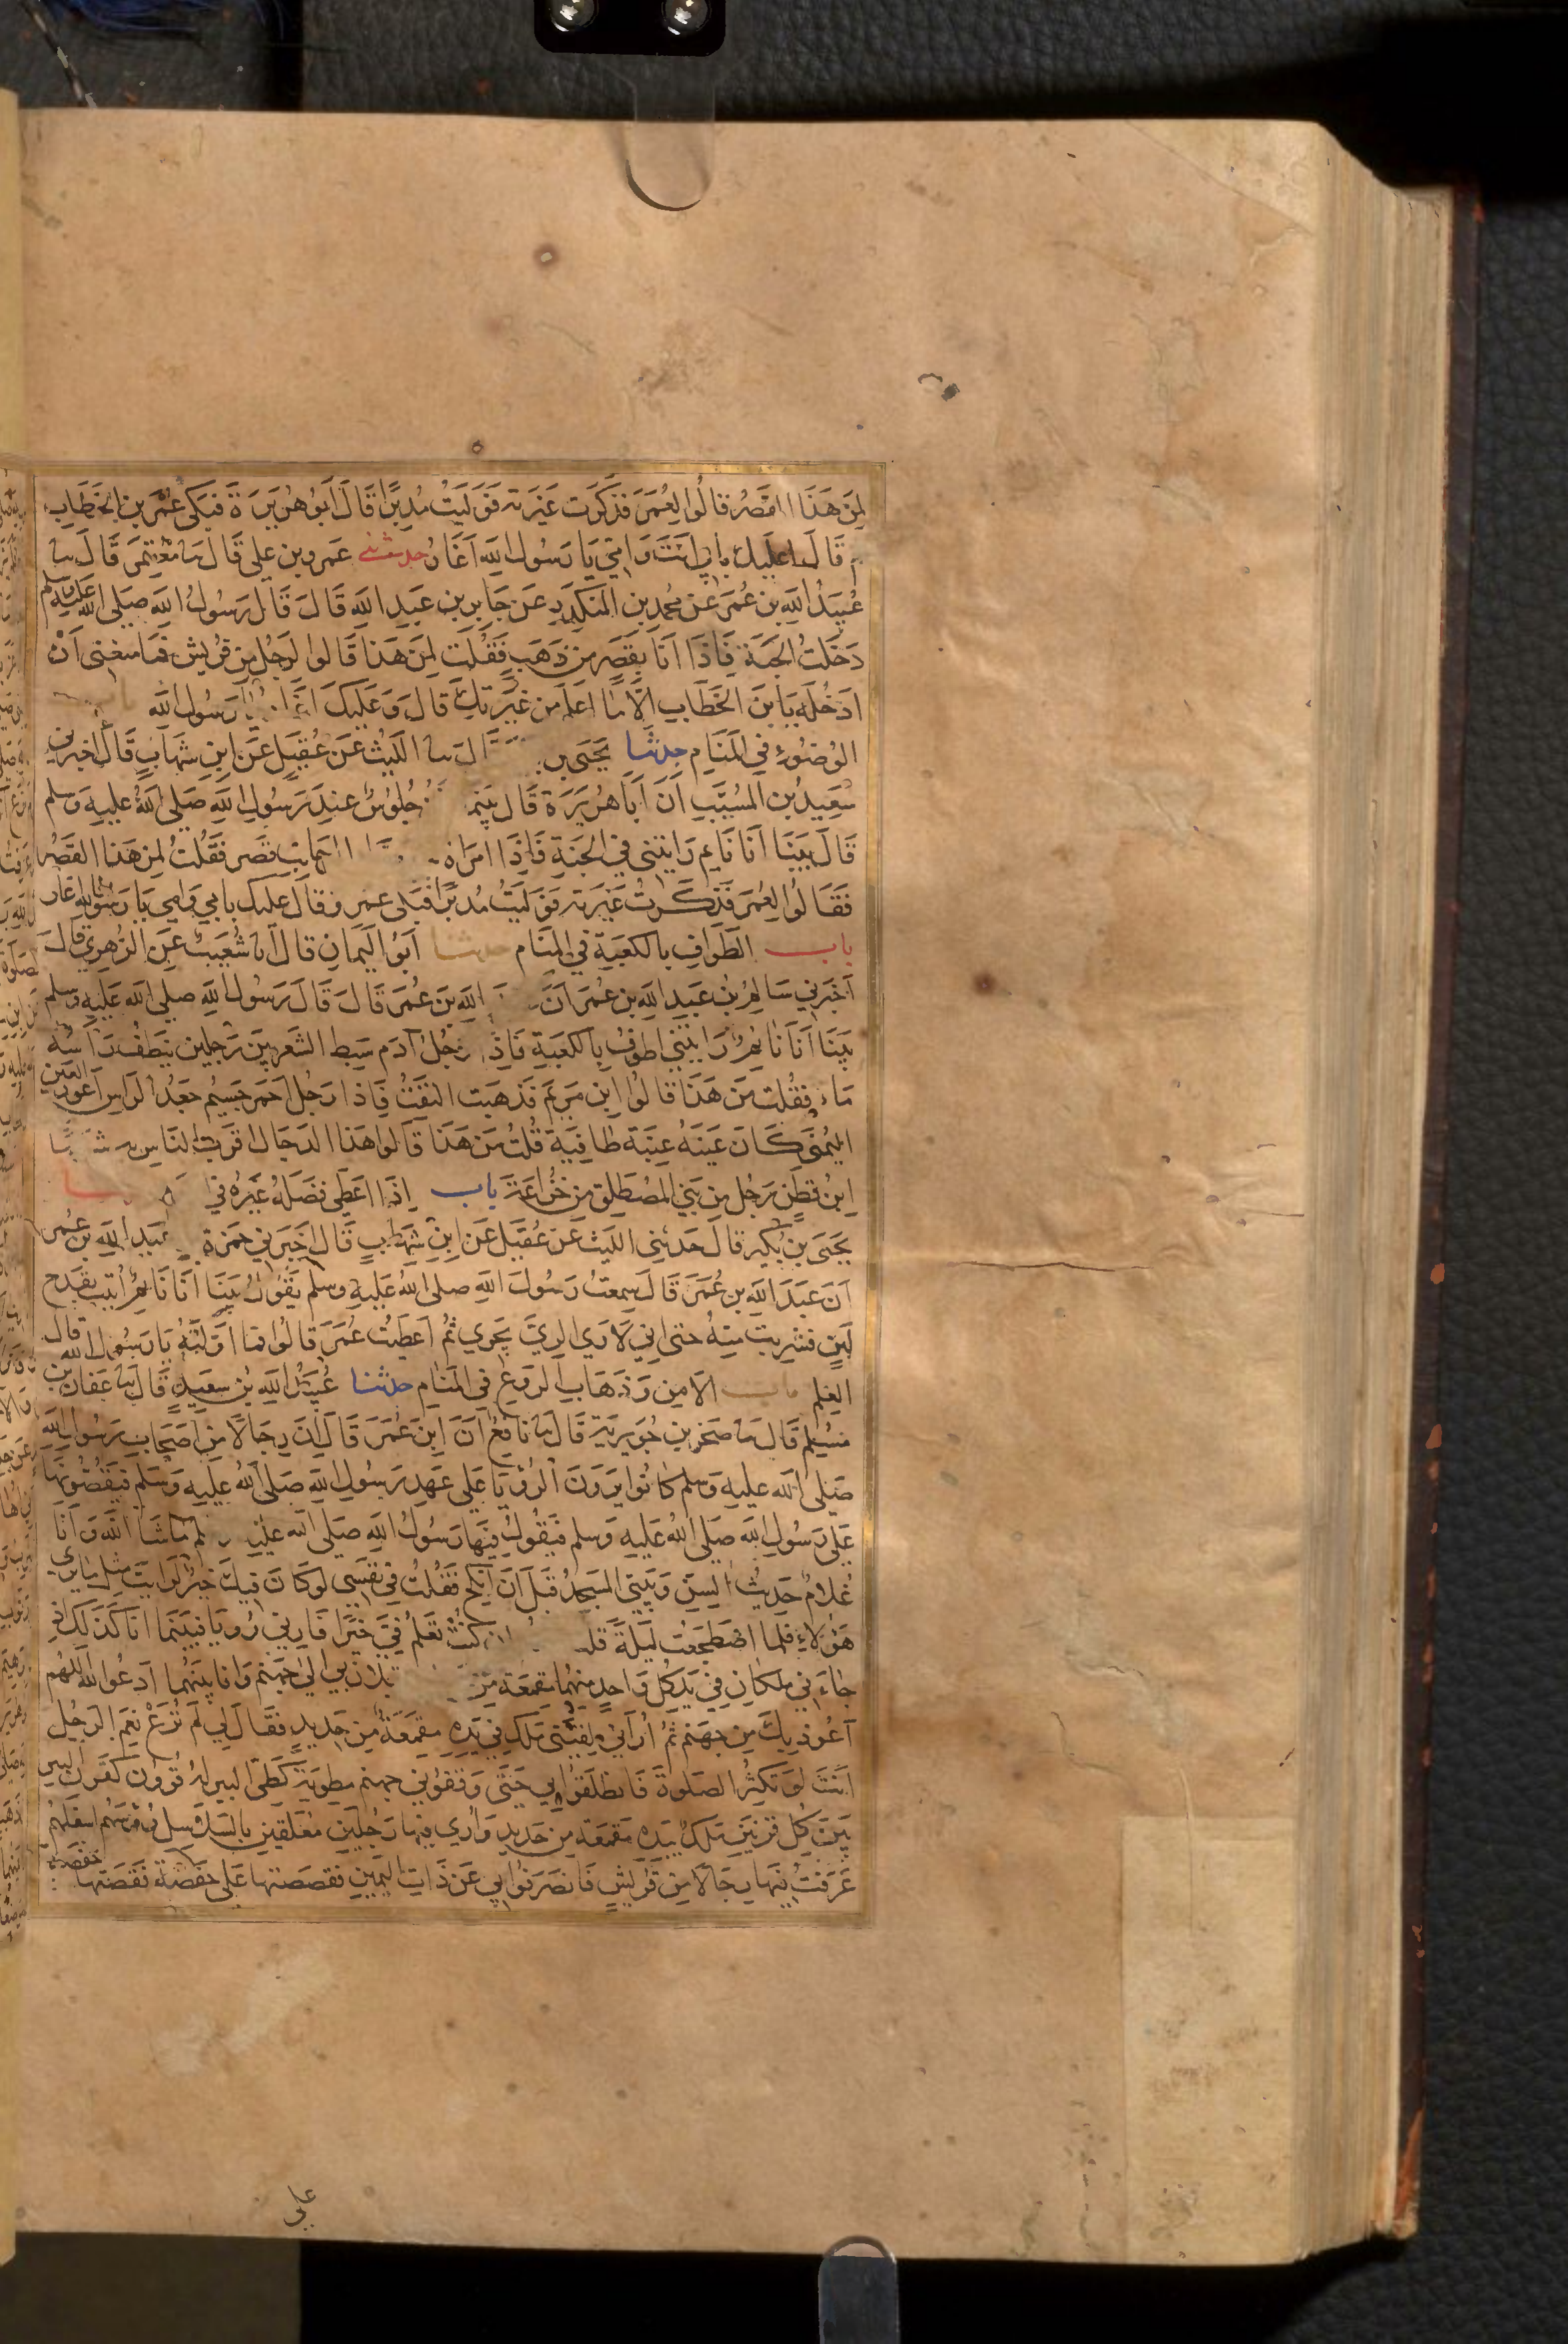 لِمَن هَذَا القَصرُ قَالُوا لِعُمَرَ فَذَكَرت غَيرَته فَوَلَّيتُ مُدبِرًا قَالَ اَبُو هُرَيرَةَ فَبَكَى عُمَر بن الخَطَّابِ
ثم قَالَ اعلَيكَ بابي انتَ وَامِّي يَا رَسُول اللَّه اَغَارُ حدثني عمرو بن علي قَالَ ثنا مُعتَمِر قَالَ ثنا
عُبَيدُ اللَّه بن عُمَرَ عَن محمد بن المنكَدِرِ عَن جَابِر بن عَبدِ اللَّهِ قَالَ قَالَ رَسُولُ اللَّهِ صَلى اللَّه عَلَيهِ وسلم
دَخَلتُ الجَنَّةَ فَاِذَا اَنَا بِقَصرٍ من ذَهَبٍ فَقُلت لِمَن هَذَا قَالوا لِرَجُلٍ من قُرَيش فمَا مَنعَنِي اَنْ
ادخُلَهُ يَا بنَ الخَطَّابِ الَّا مَا اعلَم من غَيرَتِكَ قَالَ وَعَلَيكَ اغَار يَا رَسُول اللَّه باب
الوُضُوءِ في المَنَامِ حدثنا يَحيَى بن قَالَ ثنا اللَّيثُ عَن عُقَيلٍ عَن ابنِ شِهَابٍ قَالَ اخبرني
سَعِيدُ بن المُسَيَّبِ اَنَّ اَبَا هُرَيرَةَ قَالَ بَينَمَا جُلُوسٌ عِندَ رَسُولِ اللَّهِ صَلى اللَّهُ عَلَيهِ وَسلم
قَالَ بَينَا اَنَا نَايِم رَايتُني في الجَنَّةِ فَاِذَا امرَاة الى جَانِبِ قَصرٍ فَقُلتُ لِمَن هَذَا القَصرُ
فَقَالُوا لِعُمَرَ فَذَكَرتُ غَيرَته فَوَلَّيتُ مُدبِرًا فَبَكى عمر وقَالَ عليك بابي وَامي يَا رَسُول الله اغار
باب الطَّوَافِ بالكعبَةِ في المَنَام حدثنا اَبُو اليَمَانِ قَالَ انا شُعَيبٌ عَنِ الزُّهرِي قال
اَخبَرَني سَالِمُ بن عَبدِ اللَّه بن عُمَر اَنَّ اللَّه بن عُمَرَ قَالَ قَالَ رَسُول اللَّهِ صلى اللَّه عَلَيهِ وسلم
بَينَا اَنَا نَايِمٌ رَايتُني اطوفُ بِالكَعبَةِ فَاِذَا رَجُلٌ آدَم سَبط الشَّعرِ بَين رَجُلَين يَنطف رَاسُه
مَاء فَقُلت مَن هَذَا قَالُوا ابن مَريَم فَذَهَبت التَفِتُ فَاِذَا رَجُل احمَر جَسِيم جَعد الرَّاسِ اَعوَر العَين
اليُمنَى كَانَ عَينَهُ عِنَبَة طَافِيَة قُلتُ مَن هَذَا قَالوا هَذَا الدَّجَّال اقرَب النَاس به شَبَهًا
ابنُ قَطَنٍ رَجُل مِن بَنِي المُصطَلِق من خُزَاعَة باب اِذَا اعطى فَضلَهُ غَيرَهُ في
يَحيَى بن بُكَير قَالَ حَدثني اللَّيث عَن عُقَيل عَن ابنِ شِهَابٍ قَالَ اخبَرَني حَمزة عَبدِ اللَّهِ بن عُمر
اَنَّ عَبدَ اللَّهِ بن عُمَرَ قَالَ سَمِعتُ رَسُولَ اللَّهِ صلى اللَّهُ عَلَيهِ وسلم يَقُولُ بَينَا انَا نَايِمٌ اُتِيت بِقَدَح
لَبَنٍ فشَرِبتُ مِنهُ حتى اني لَارَى الرِّيَّ يَجري ثُم اَعطَيتُ عُمَرَ قَالُوا فَمَا اَوَّلتَهُ يَا رَسُول الله قال
العِلم باب الامنِ وَذَهَابِ الرَّوعِ في المَنَامِ حدثنا عُبَيدُ اللَّهِ بن سَعِيدٍ قَالَ ثنا عفان بن
مُسلِم قَالَ ثنا صَخرُ بن جُوَيرِيَة قَالَ ثنا نَافِعٌ اَنَّ ابنَ عُمَرَ قَالَ اِنَّ رِجَالًا مِن اَصحَابِ رَسُول اللَّهِ
صَلى اللَّه عليهِ وَسلم كَانُوا يَرَونَ الرُّؤيَا عَلَى عَهدِ رَسُولِ اللَّهِ صَلى اللَّهُ عَلَيهِ وَسَلَّم فَيَقُصُّونَهَا
عَلى رَسُولِ اللَّهِ صَلى اللَّهُ عَلَيهِ وَسلم فَيَقُولُ فِيهَا رَسُولُ اللَّهِ صَلى اللَّه عَلَيه وسلم مَا شَا اللَّه وَاَنَا
غُلَامٌ حَدِيثُ السِنِّ وَبَيتي المَسجِدُ قَبلَ اَن اَنكِح فَقُلتُ في نَفسِي لَو كَانَ فِيكَ خَيرٌ لَرَايتَ مِثل مَا يَرى
هَؤُلَاءِ فلَما اضطَجَعت لَيلَةً قلت ان كُنتَ تَعلَمُ فِيَّ خَيرًا فَارِني رُويَا فبَينَمَا انَا كَذَلِكَ اذ
جَاءَني مَلَكَانِ في يَد كُل وَاحِدٍ مِنهُمَا مِقمَعَة مِن يُقبِلَان بي الى جَهَنم وَانَا بَينَهُما ادعُوا اللَّه اللهُم
اَعُوذ بِكَ مِن جَهَنم ثُمَّ اُرَاني لَقِيَني مَلَك في يَدِهِ مِقمَعَةٌ مِن حَدِيدٍ فَقَالَ لي لَم تُرَع نِعمَ الرَّجُل
اَنتَ لَو تُكثِرُ الصلوةَ فَانطَلَقُوا بي حَتى وَقَفُوا بي جهنم مطوِيَّة كَطَيِّ البير لَهُ قُرُون كَقُرون البير
بَينَ كُلِّ قَرنَينِ مَلَكٌ بِيَدِهِ مِقمَعَة مِن حَدِيدٍ وَاَرَى فيها رِجَالًا مُعَلَّقِين بِالسَّلَاسِلِ رُؤسُهُم اسفَلَهُم
عَرَفتُ فِيهَا رِجَالًا مِن قُرَيشٍ فَانصَرَفُوا بي عَن ذَاتِ اليَمِينِ فَقَصَصتُها عَلى حَفصَة فَقَصَّتهَا حفصة
على